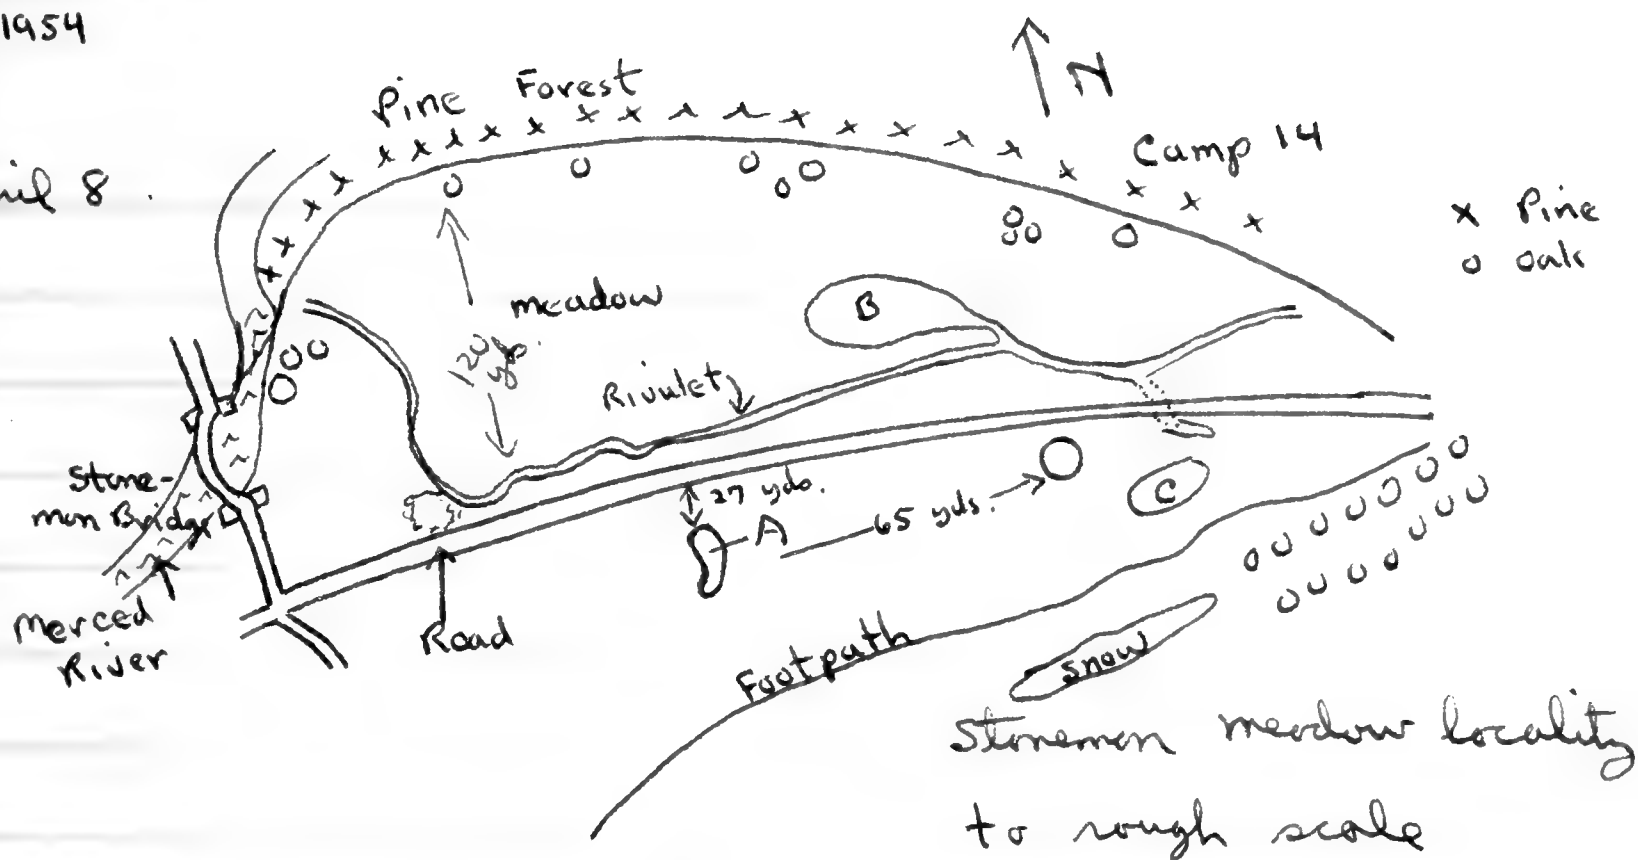 1954
Pine Forest
N
Camp 14
8
x Pine
o oak
meadow
120
yds.
B
Rivulet
Stone-
man Bridge
27 yds.
A
65 yds.
C
Merced
River
Road
Footpath
Snow
Stoneman meadow locality
to rough scale